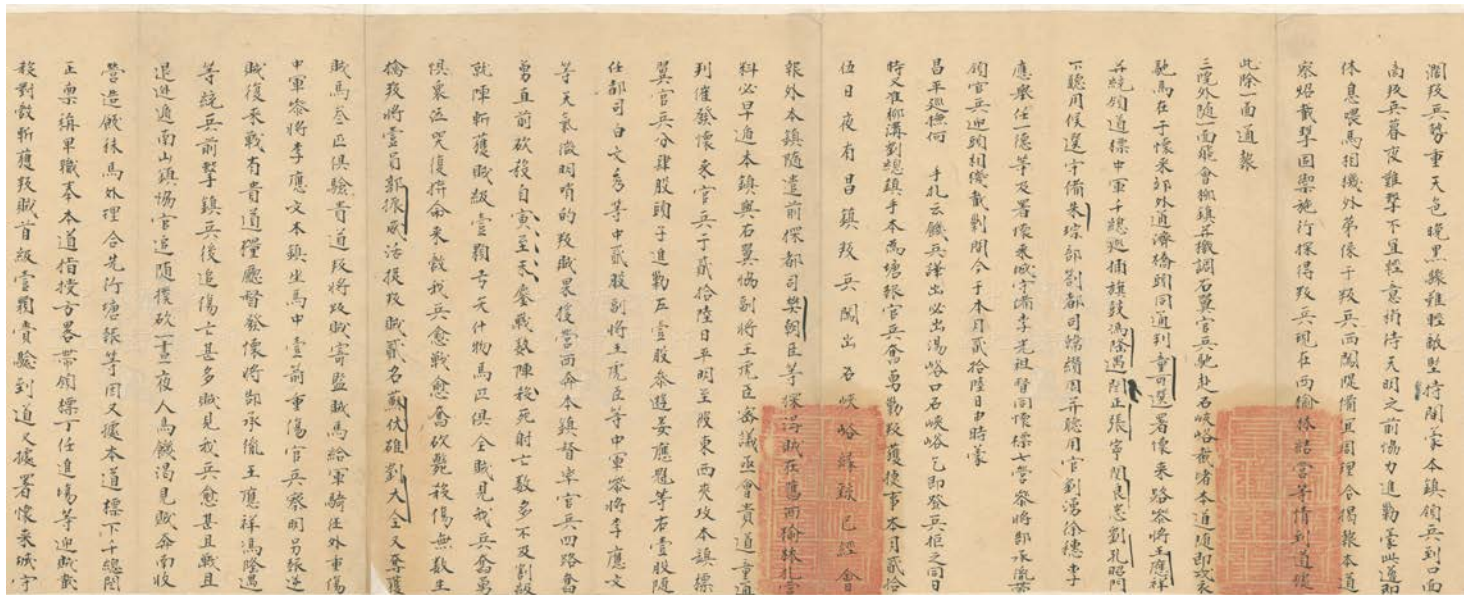 溷叛兵勢重天色晚黑緣難輕敵堅待閒蒙本鎮領兵到口面
南叛兵暮夜難擊不宜輕意稍待天明之前協力進勦當此道即
休息喂馬相機外第係于叛兵西關隄備宜周理合揭報本道
察照截擊固禦施行探得叛兵現在西榆林結營等情到道據
此除一面通報
三院外隨一面飛會撫鎮并檄調石翼官兵馳赴石峽峪南者本道隨即戎衣
馳馬在于懷來郊外通濟橋頭同通判童可選署懷來路參將王應祥
并統領道標中軍千總巡捕旗鼓馮陞遇閆正張寧閆良忠劉孔昭門
下聽用候選守備朱琮部劄都司韓纘周并聽用官劉湧徐穗李
應舉任一德等及署懷來城守備李光祖督同懷標七營參將郜承胤等
領官兵迎頭相機截剿間今于本月貳拾陸日申時蒙
昌平巡撫何 手札云饑兵謹出必出湯峪口石峽峪乞即發兵拒之同日
時又准柳溝劉總鎮手本為塘報官兵奮勇勦叛獲捷事本月貳拾
伍日夜有昌鎮叛兵闖出石峽峪緣繇已經會
報外本鎮隨遣前探都司樊朝臣等探得賊在舊西榆林扎營
料必早遁本鎮與石翼協副將王虎臣密議亟會貴道童通
判催發懷來官兵于貳拾陸日平明至彼東西夾攻本鎮標
翼官兵分肆股頭子進勦左壹股參遊姜應魁等右壹股隨
任都司白文秀等中貳股副將王虎臣等中軍參將李應文
等天氣微明哨的叛賊果拔營西奔本鎮督率官兵四路奮
勇直前砍殺自寅至未鏖戰數陣殺死射亡數多不及割級
就陣斬獲賊級壹顆弓矢什物馬匹俱全賊見我兵奮勇
俱衆泣哭復拚命來敵我兵愈戰愈奮砍斃殺傷無數生
擒叛將壹員郭振威活捉叛賊貳名蘇伏碓劉大全又奪獲
賊馬叁匹俱驗貴道叛將叛賊寄監賊馬給軍騎征外重傷
中軍參將李應文本鎮坐馬中壹箭重傷官兵察明另報逆
賊復來戰有貴道禮廳督發懷將郜承胤王應祥馮陞遇
等統兵前擊鎮兵後追傷亡甚多賊見我兵愈甚且戰且
退逃遁南山鎮協官追隨撲砍一晝夜人馬饑渴見賊奔南收
營造飯秣馬外理合先行塘報等因又據本道標下千總閆
正稟稱卑職奉本道指授方畧帶領標丁任進場等迎賊截
殺對敵斬獲叛賊首級壹顆賫驗到道又據署懷來城守